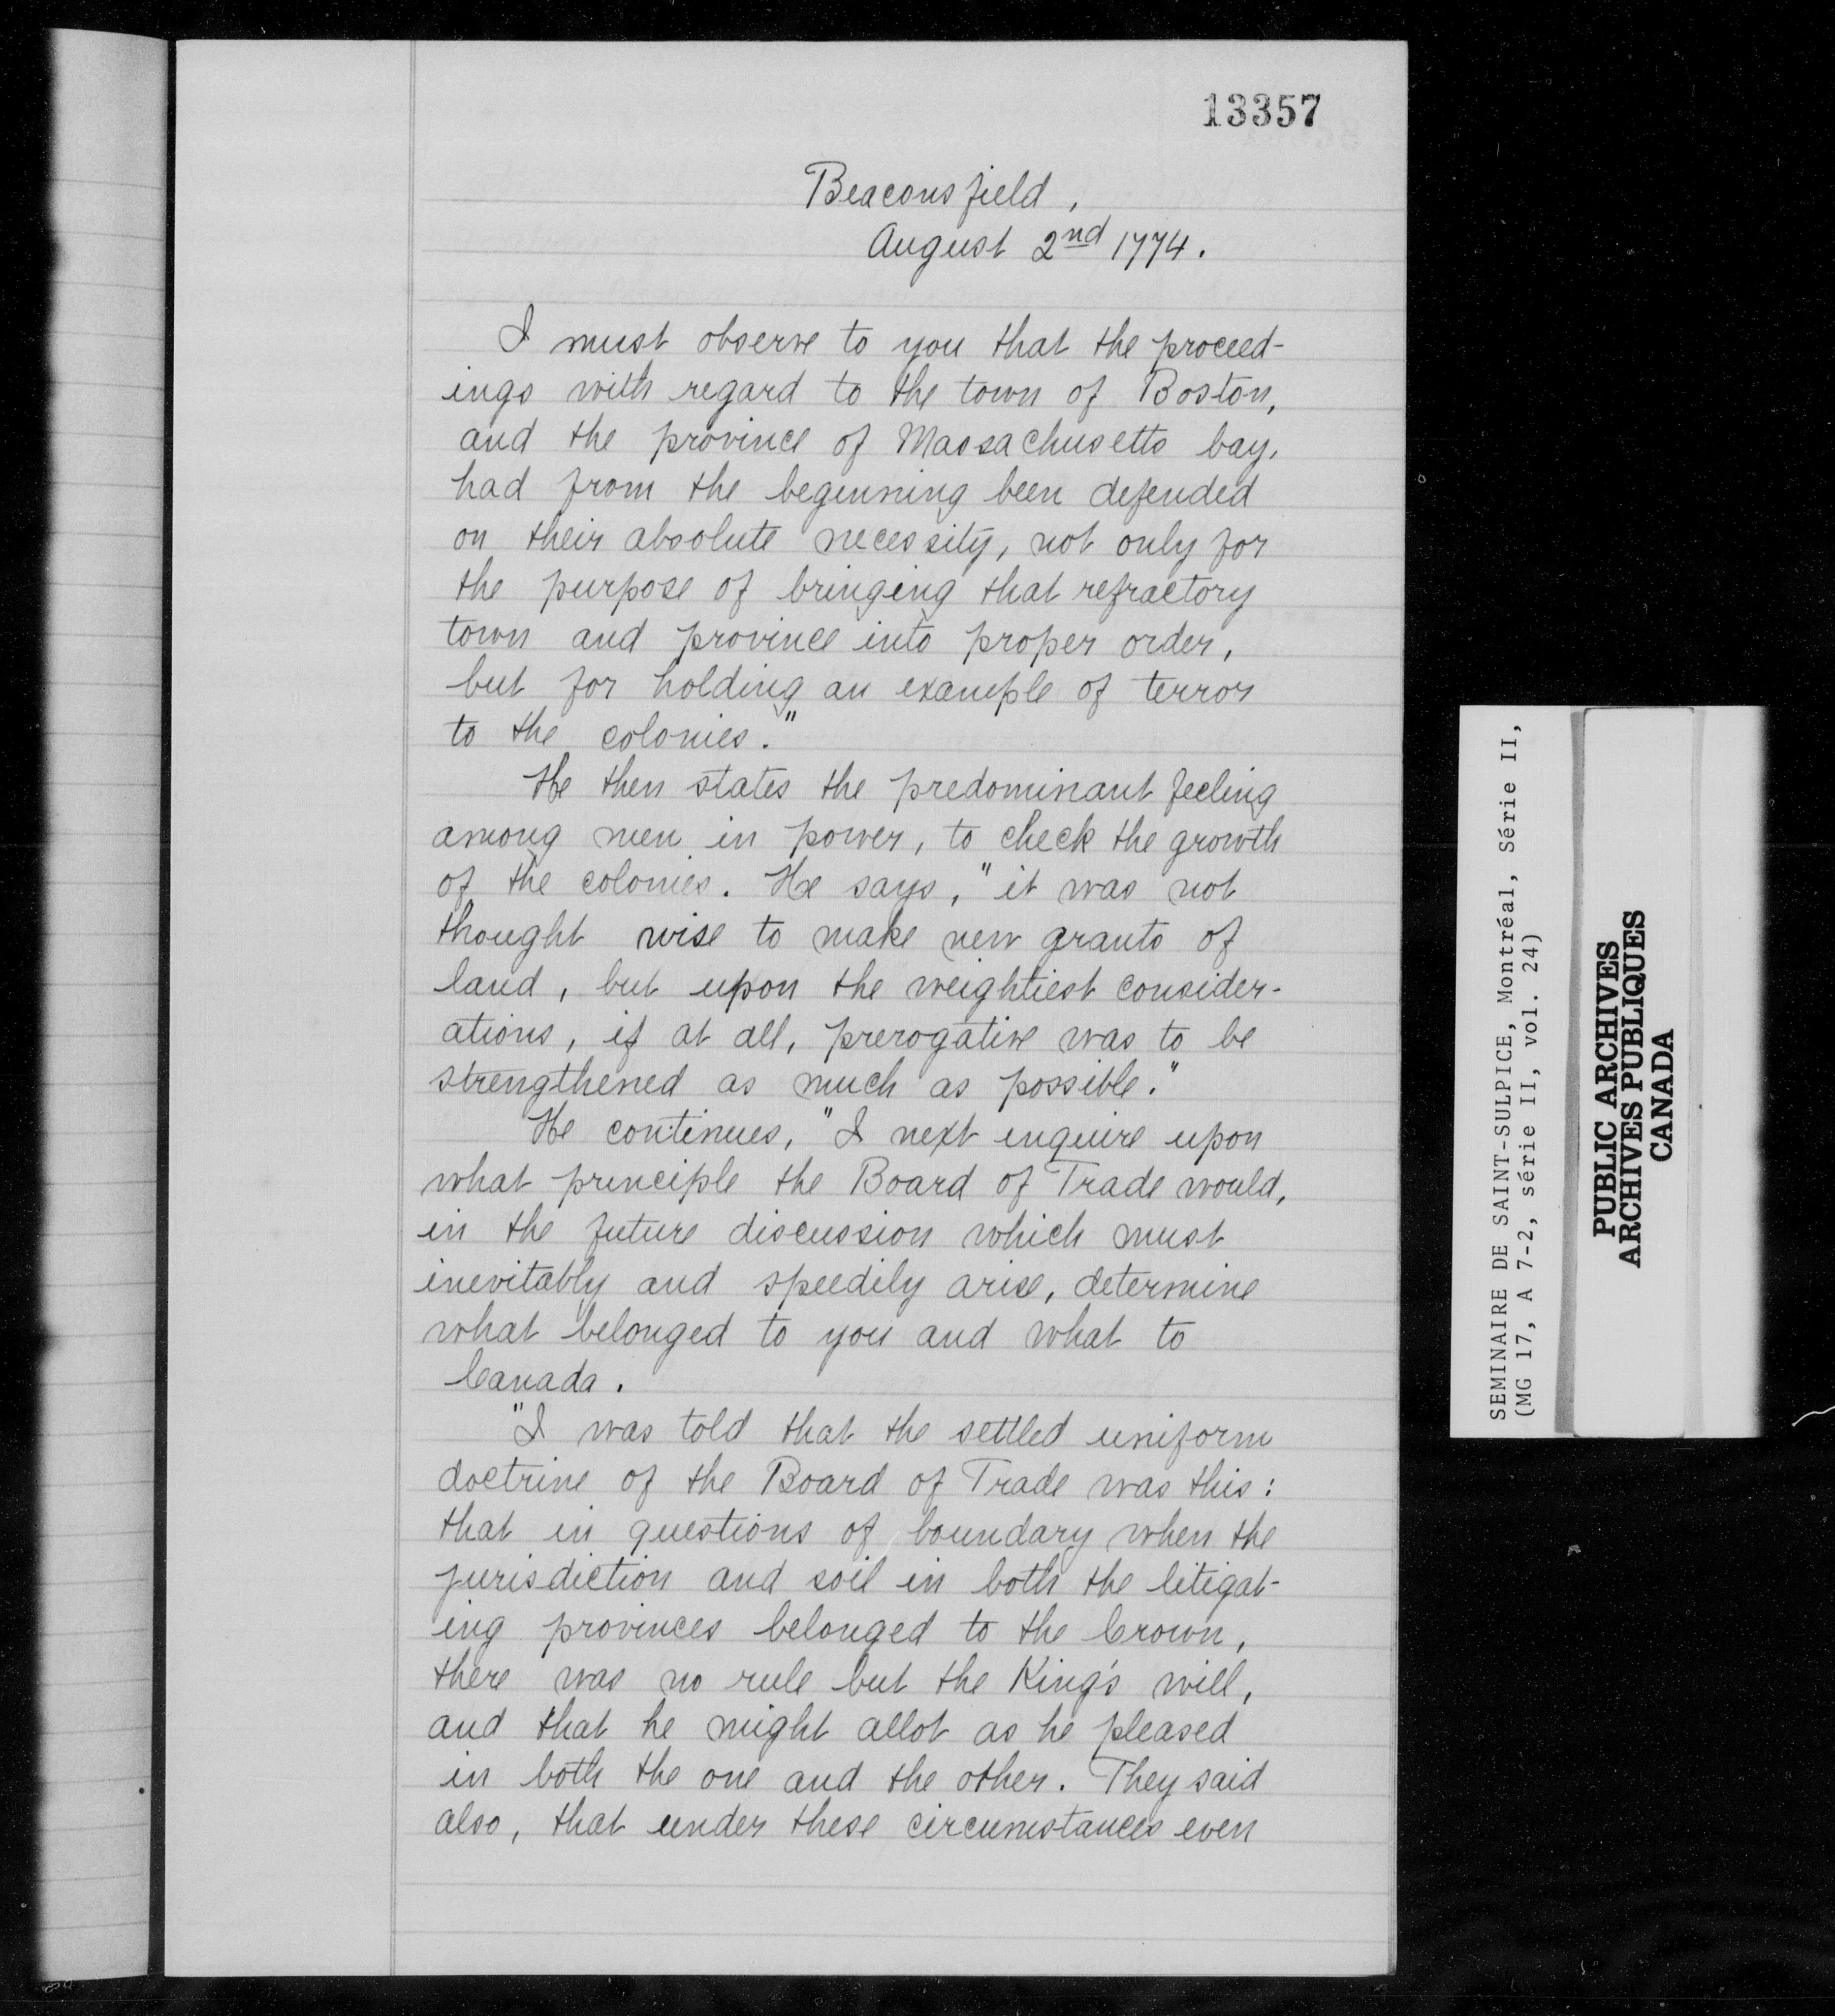 13357
Beaconsfield,
August 2nd 1774.
I must observe to you that the proceed-
ings with regard to the town of Boston,
and the province of Massachusetts bay,
had from the beginning been defended
on their absolute necessity, not only for
the purpose of bringing that refractory
town and province into proper order,
but for holding an example of terror
to the colonies."
He then states the predominant feeling
among men in power, to check the growth
of the colonies. He says, "it was not
thought wise to make new grants of
land, but upon the weightiest consider-
ations, if at all, prerogative was to be
strengthened as much as possible."
He continues, "I next enquire upon
what principle the Board of Trade would,
in the future discussion which must
inevitably and speedily arise, determine
what belonged to you and what to
Canada.
"I was told that the settled uniform
doctrine of the Board of Trade was this:
that in questions of boundary when the
jurisdiction and soil in both the litigat-
ing provinces belonged to the Crown,
there was no rule but the King's will,
and that he might allot as he pleased
in both the one and the other. They said
also, that under these circumstances even
SEMINAIRE DE SAINT-SULPICE, Montréal, Série II,
(MG 17, A 7-2, série II, vol. 24)
PUBLIC ARCHIVES
ARCHIVES PUBLIQUES
CANADA